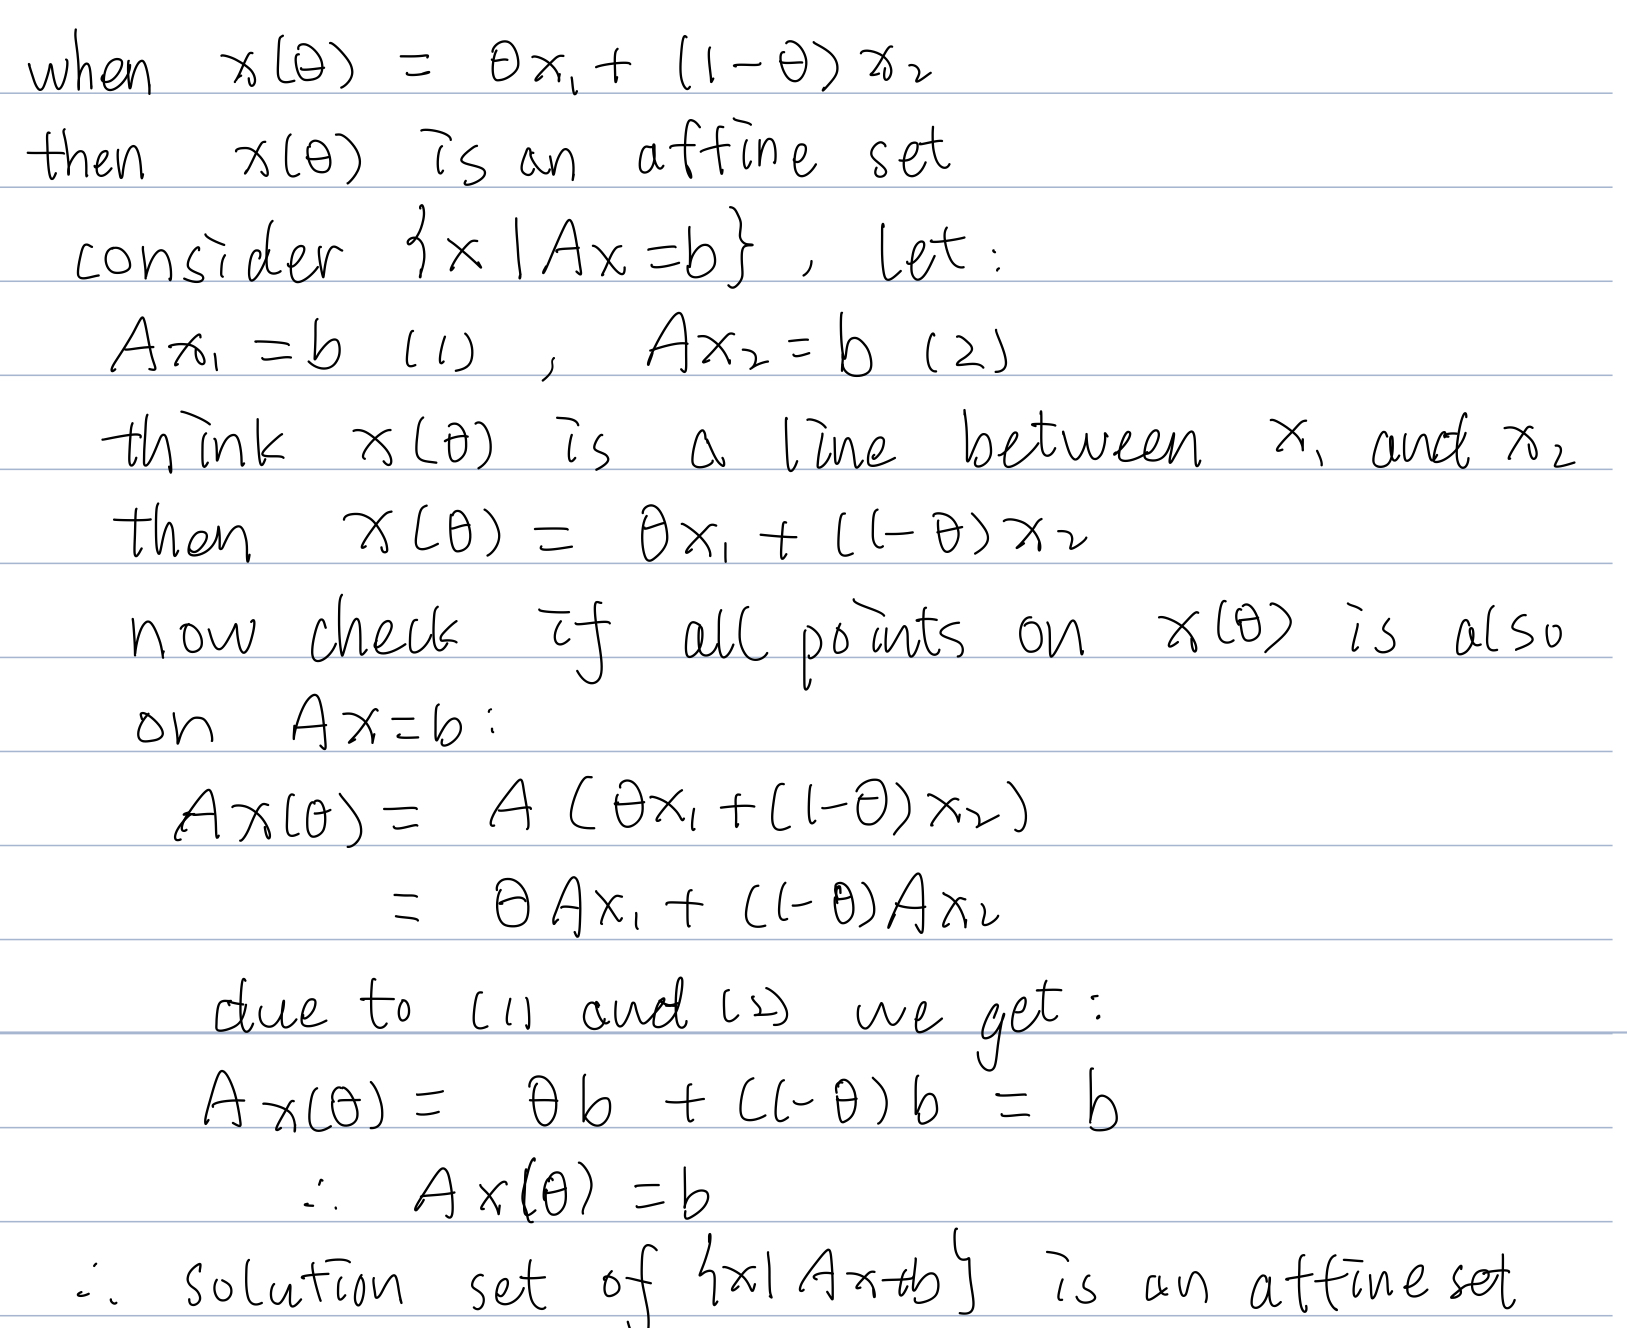 when x(θ) = θx₁ + (1-θ)x₂
then x(θ) is an affine set
consider {x | Ax=b}, let:
Ax₁ = b (1) , Ax₂ = b (2)
think x(θ) is a line between x₁ and x₂
then x(θ) = θx₁ + (1-θ)x₂
now check if all points on x(θ) is also
on Ax=b:
Ax(θ) = A(θx₁+(1-θ)x₂)
= θAx₁ + (1-θ)Ax₂
due to (1) and (2) we get:
Ax(θ) = θb + (1-θ)b = b
∴ Ax(θ) = b
∴ solution set of {x| Ax=b} is an affine set